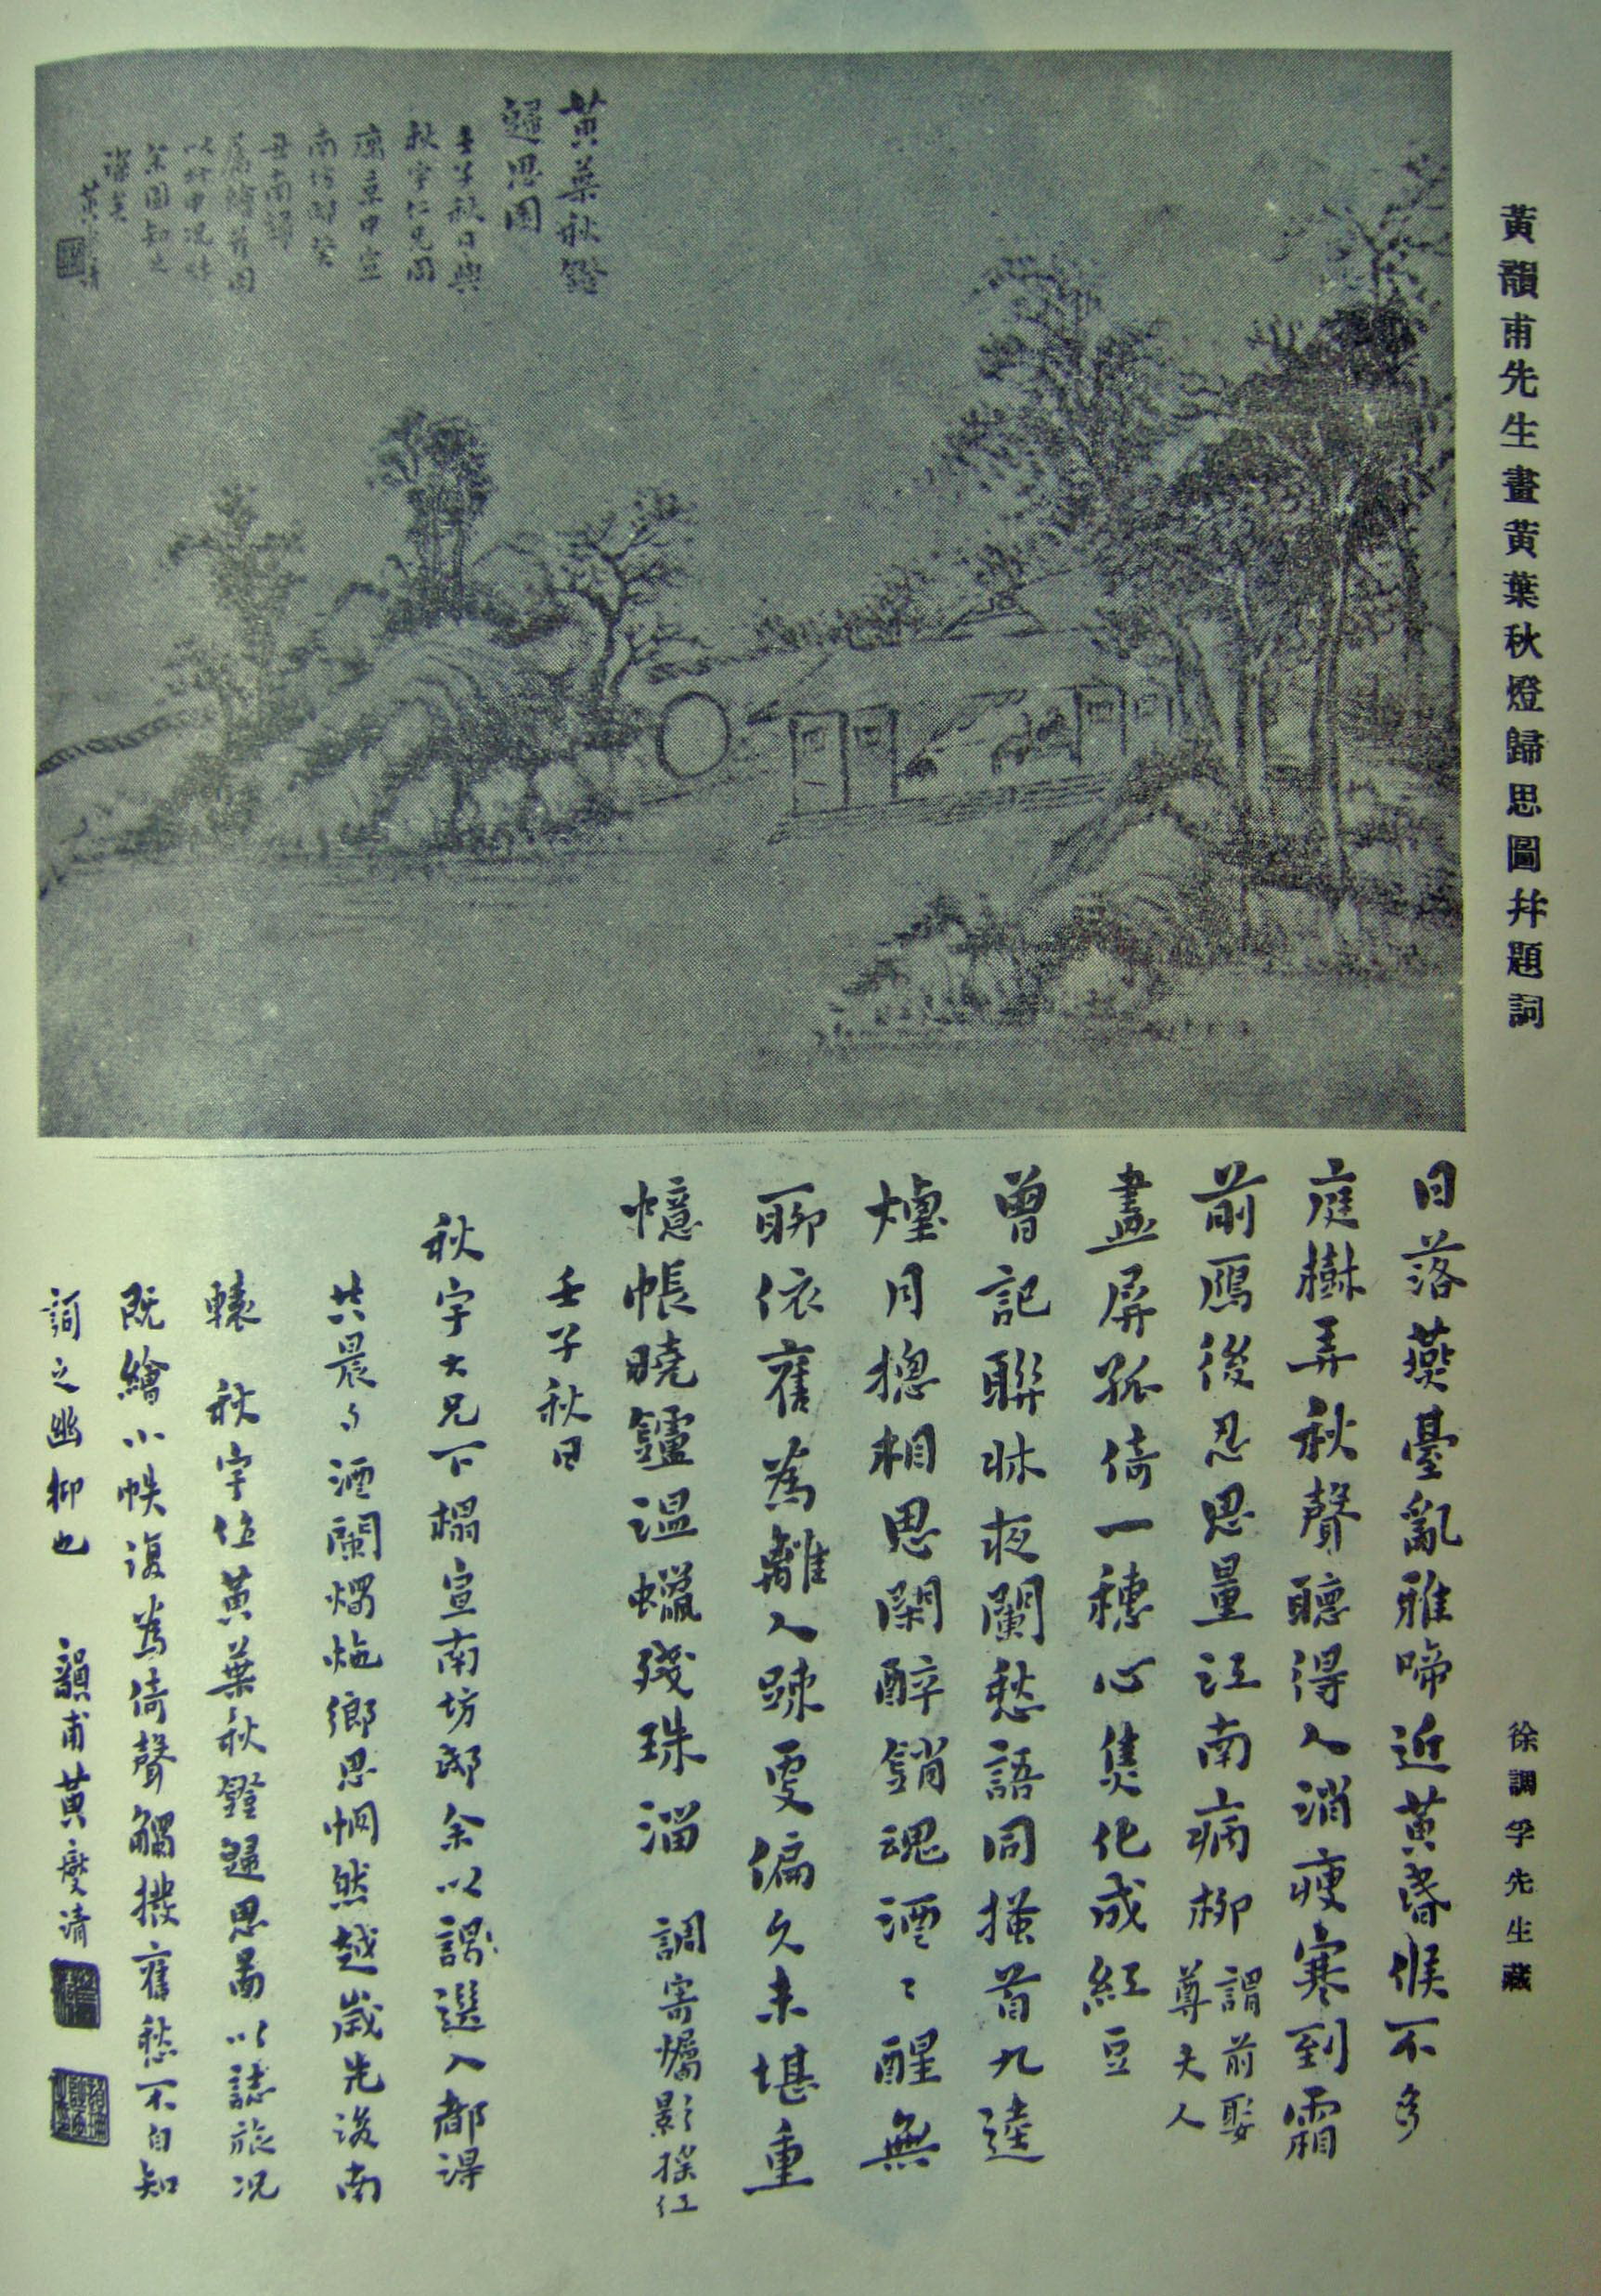 黃韻甫先生畫黃葉秋燈歸思圖幷題詞
徐調孚先生藏
黃葉秋鐙
歸思圖
壬子秋日與
秋宇仁兄同
寓京中宣
南坊邸癸
丑南歸
屬繪前圖
以
余圖知之
黃燮清
日落燕臺亂雅啼近黃昏候不多
庭樹弄秋聲聽得人消瘦寒到霜
前鴈後忍思量江南病柳謂前聚尊夫人
畫屏孤倚一穗心隻化成紅豆
曾記聯牀夜闌愁語同搔首九逵
煙月摠相思閑醉銷魂酒〻醒無
聊依舊為離人踈雯偏久未堪重
憶帳曉鑪温蠟殘珠溜 調寄燭影搖紅
壬子秋日
秋宇大兄下榻宣南坊邸余以謁選入都得
共晨夕酒闌燭灺鄉思惘然越歲先後南
轅 秋宇作黃葉秋鐙歸思圖以誌旅况
既繪小帙復為倚聲觸撥舊愁不自知
詞之幽抑也 韻甫黃燮清